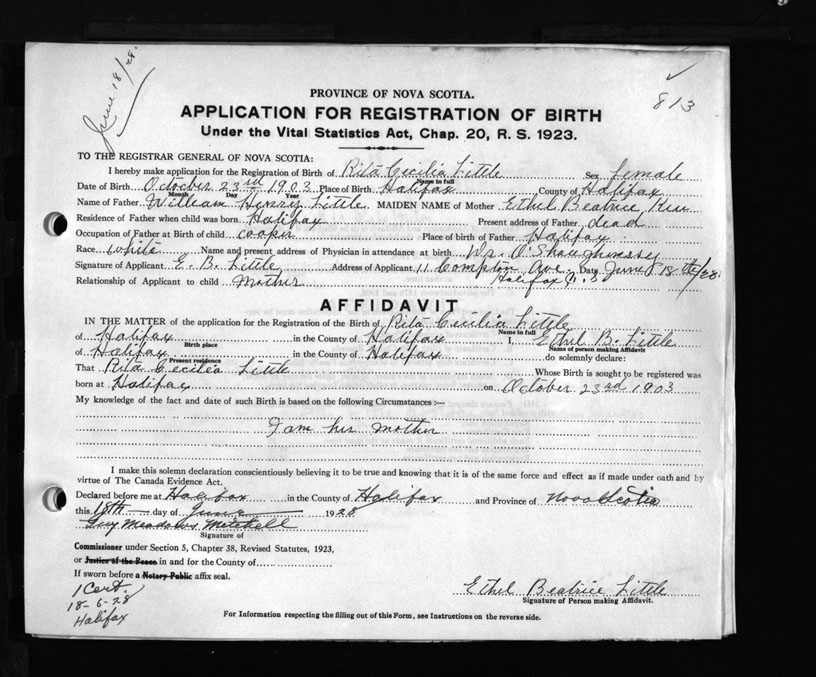 June 18/28.
813
PROVINCE OF NOVA SCOTIA.
APPLICATION FOR REGISTRATION OF BIRTH
Under the Vital Statistics Act, Chap. 20, R. S. 1923.
TO THE REGISTRAR GENERAL OF NOVA SCOTIA:
I hereby make application for the Registration of Birth of Rita Cecilia Little Sex female
Name in full
Date of Birth October 23rd 1903 Place of Birth Halifax County of Halifax
Month Day Year
Name of Father William Henry Little MAIDEN NAME of Mother Ethel Beatrice
Residence of Father when child was born Halifax Present address of Father dead
Occupation of Father at Birth of child cooper Place of birth of Father Halifax
Race white Name and present address of Physician in attendance at birth Dr. O'Shaughnessy
Signature of Applicant E. B. Little Address of Applicant 11 Compton Ave. Date June 18th/28.
Relationship of Applicant to child Mother Halifax N.S
AFFIDAVIT
IN THE MATTER of the application for the Registration of the Birth of Rita Cecilia Little
Name in full
of Halifax in the County of Halifax I, Ethel B. Little
Birth place Name of person making Affidavit
of Halifax in the County of Halifax do solemnly declare:
Present residence
That Rita Cecilia Little Whose Birth is sought to be registered was
born at Halifax on October 23rd 1903
My knowledge of the fact and date of such Birth is based on the following Circumstances:—
I am her mother
I make this solemn declaration conscientiously believing it to be true and knowing that it is of the same force and effect as if made under oath and by
virtue of The Canada Evidence Act.
Declared before me at Halifax in the County of Halifax and Province of Nova Scotia
this 18th day of June 1928
Guy Meadows Mitchell
Signature of
Commissioner under Section 5, Chapter 38, Revised Statutes, 1923,
or Justice of the Peace in and for the County of
If sworn before a Notary Public affix seal.
1 Cert.
18-6-28
Halifax
Ethel Beatrice Little
Signature of Person making Affidavit.
For Information respecting the filling out of this Form, see Instructions on the reverse side.